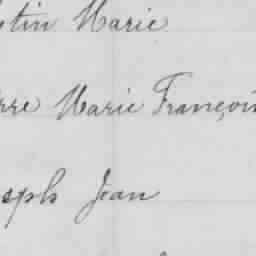 stin Marie
rre Marie Françoi
seph Jean